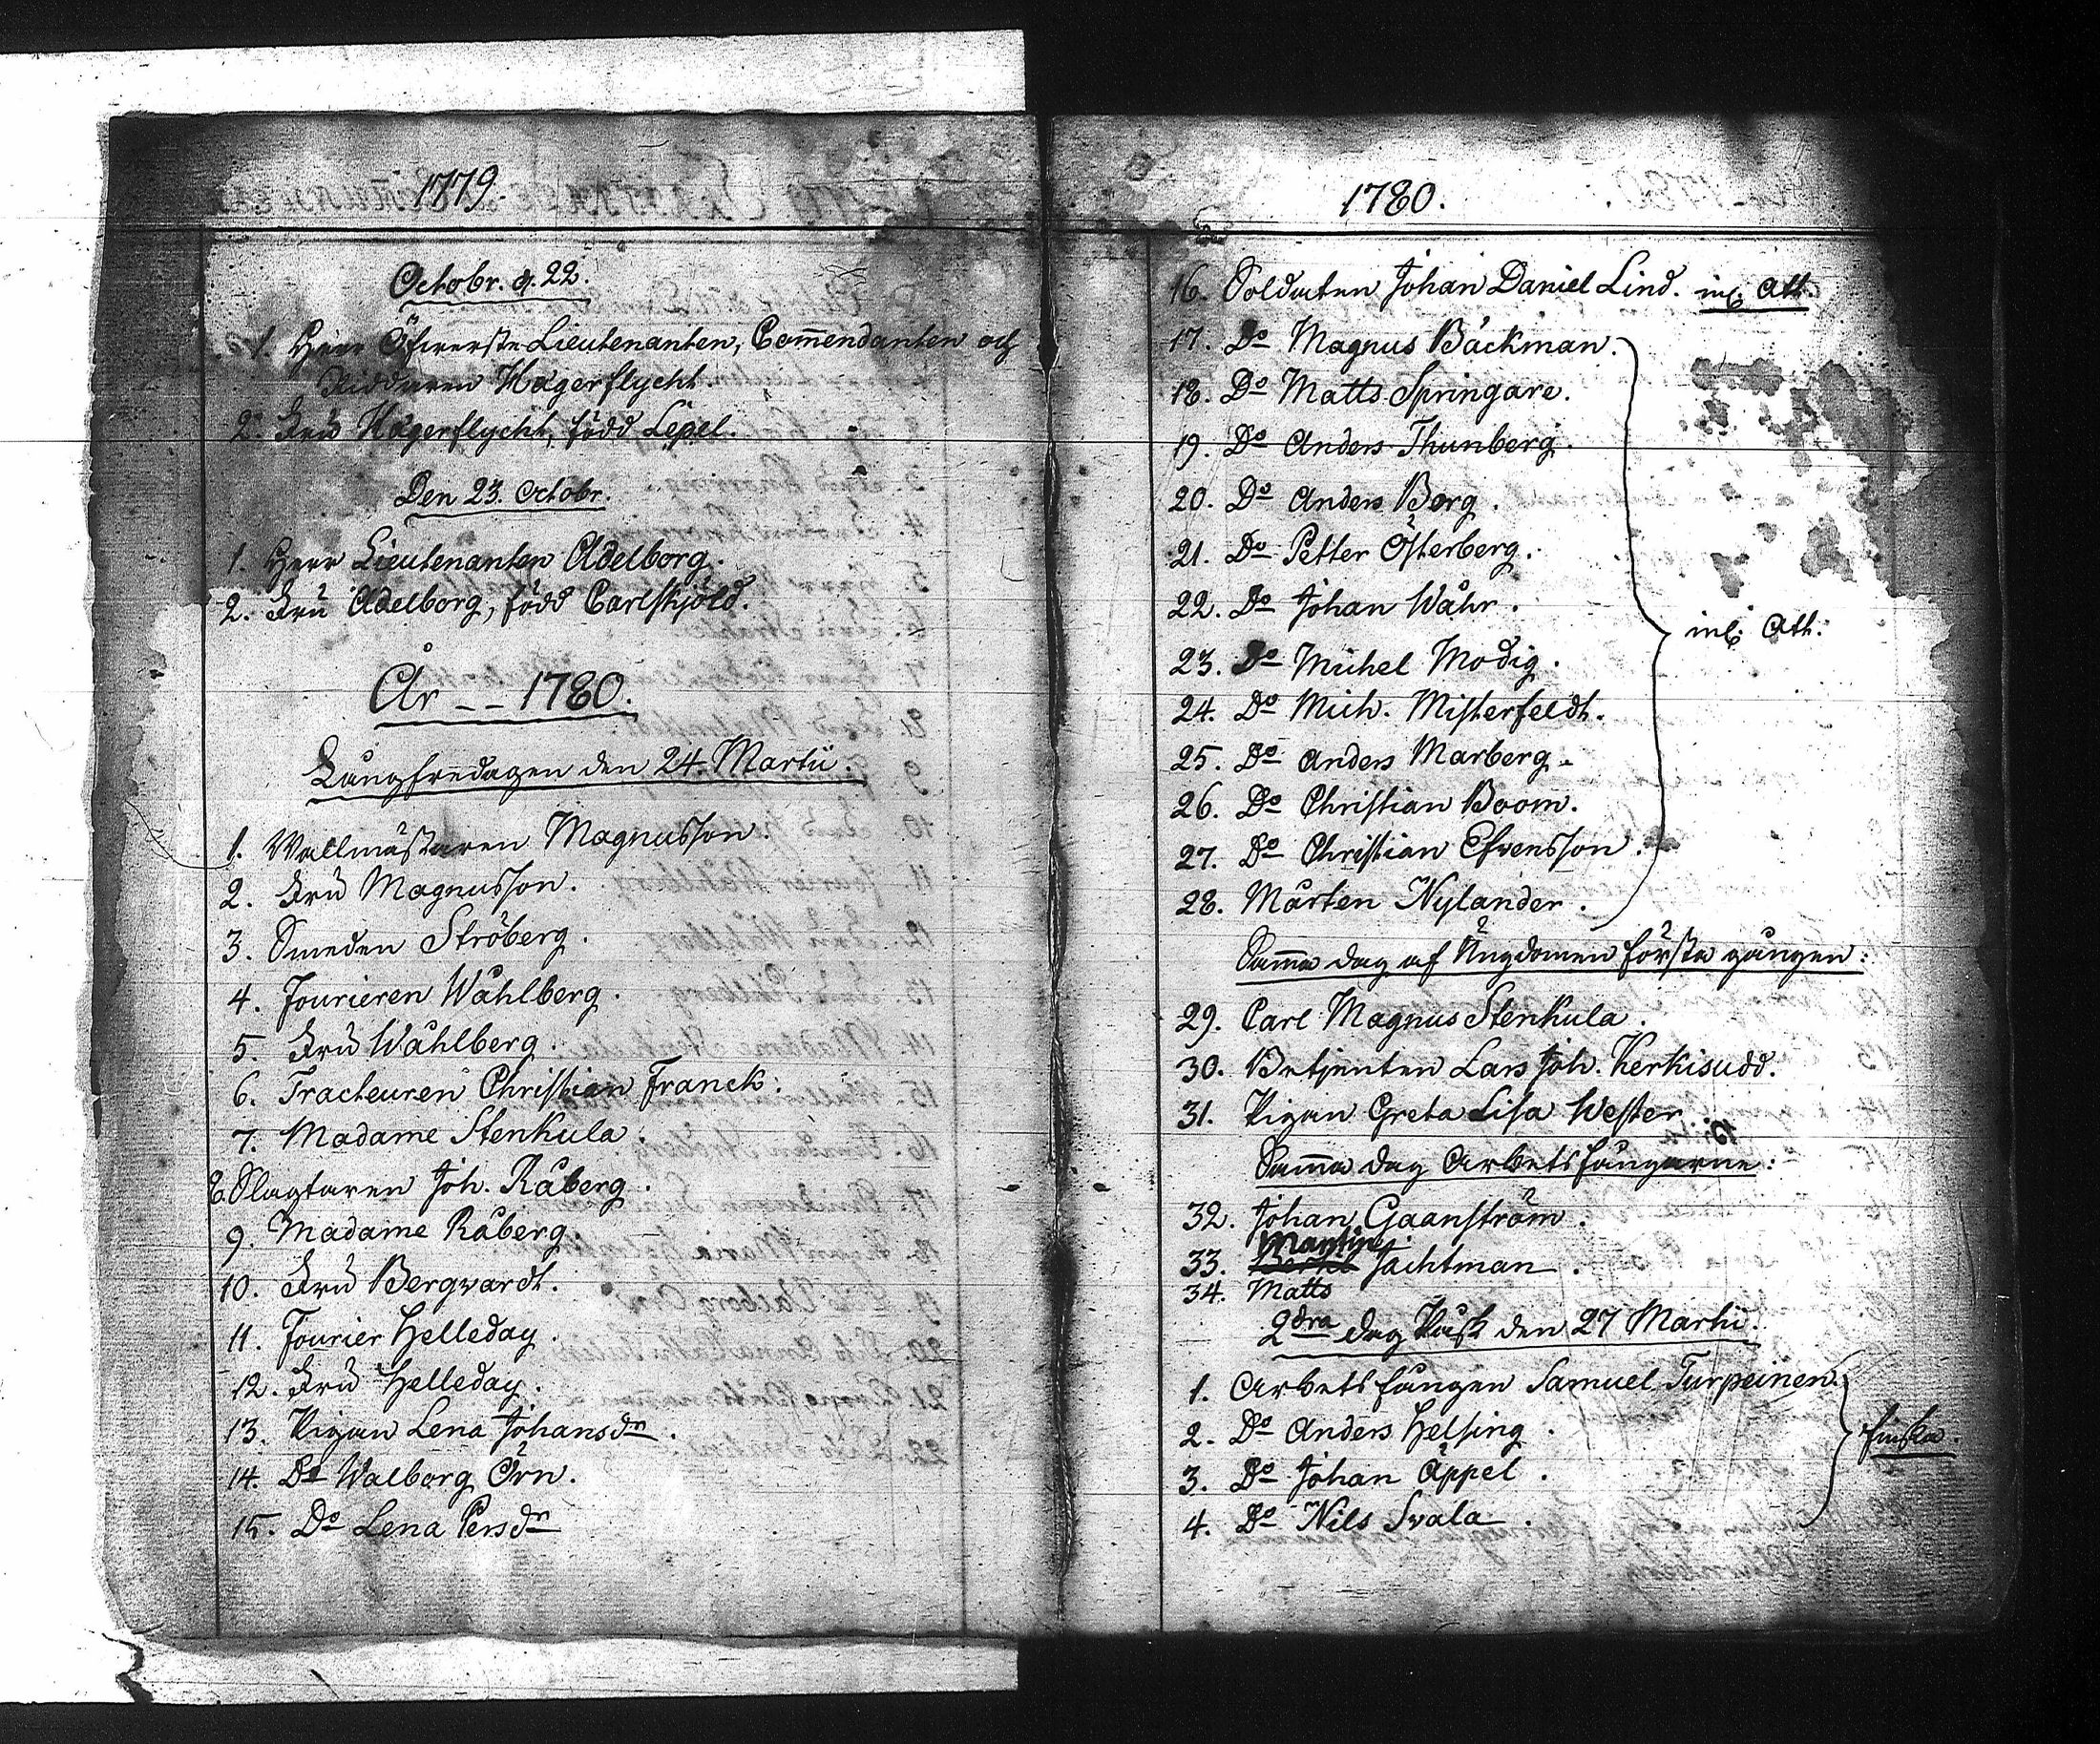 1779.
Octobr. d. 22.
1. Herr Öfwerste Lieutenanten, Com̄endanten och
Riddaren Hägerflycht.
2. Fru Hägerflycht, född Lepel.
Den 23. Octobr.
1. Herr Lieutenanten Adelborg.
2. Fru Adelborg, född Carlskjöld.
År -- 1780.
Långfredagen den 24. Martii.
1. Wallmästaren Magnusson.
2. Fru Magnusson.
3. Smeden Ströberg.
4. Fourieren Wåhlberg.
5. Fru Wåhlberg.
6. Tracteuren Christian Franck.
7. Madame Stenkula
8. Slagtaren Joh. Råberg.
9. Madame Råberg
10. Fru Bergvardt.
11. Fourier Helleday.
12. Fru Helleday.
13. Pigan Lena Johansdr.
14. Do Walborg Örn.
15. Do Lena Persdr
1780.
16. Soldaten Johan Daniel Lind. Att.
17. Do Magnus Bäckman.
18. Do Matts Springare.
19. Do Anders Thunberg.
20. Do Anders Berg.
21. Do Petter Österberg.
22. Do Johan Wåhr.
23. Do Michel Modig.
24. Do Mich. Misterfeldt.
25. Do Anders Marberg.
26. Do Christian Boom.
27. Do Christian Efvensson.
28. Mårten Nylander.
Att.
Sam̄a dag af Ungdomen första gången:
29. Carl Magnus Stenkula.
30. Betjenten Lars Joh. Kerkisudd.
31. Pigan Greta Lisa Wester
Sam̄a dag Arbetsfångarne:
32. Johan Gaanström.
Martin
33. Jachtman.
34. Matts
2dra dag Påsk den 27 Martii.
1. Arbetsfången Samuel Turpeinen.
2. Do Anders Helsing.
3. Do Johan Äppel.
4. Do Nils Svala.
finska.